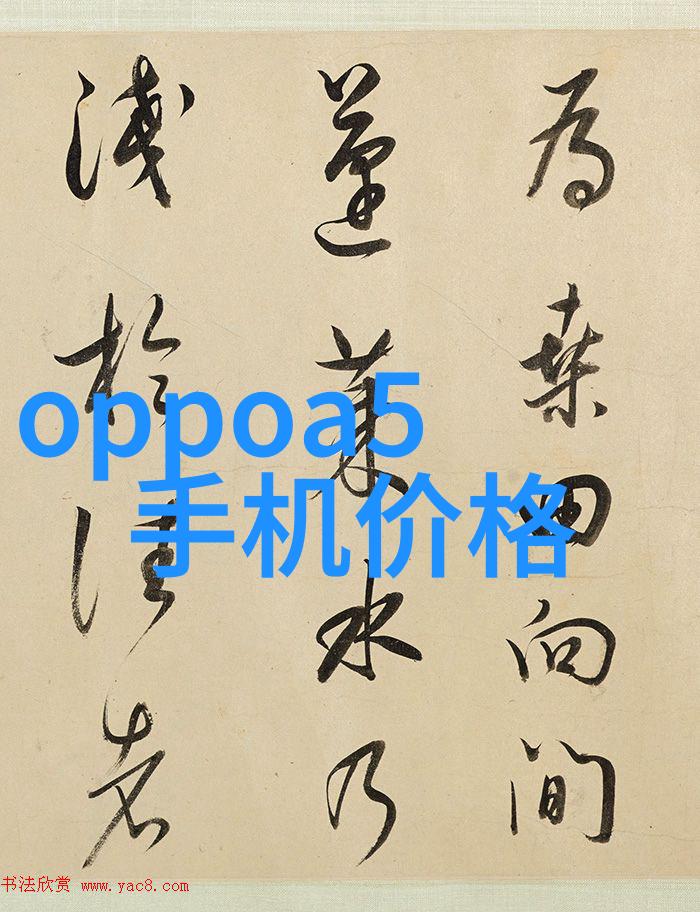 為桑田向間
蓬萊水乃
淺於往者
oppoa5
手机价格
书法欣赏 www.yac8.com